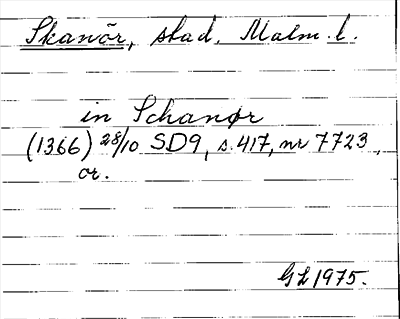 Skanör, stad, Malm. l.
in Schanør
(1366) 28/10 SD9, s. 417, nr 7723,
or.
GL 1975.